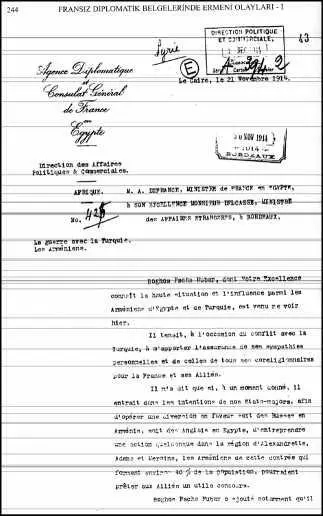 244 FRANSIZ DİPLOMATİK BELGELERİNDE ERMENİ OLAYLARI - I
Syrie
DIRECTION POLITIQUE
ET COMMERCIALE,
43
E
Agence Diplomatique
et
Consulat Général
de France
en
Egypte
Le Caire, le 21 Novembre 1914.
30 NOV 1914
1914
BORDEAUX
Direction des Affaires
Politiques & Commerciales.
AFRIQUE.
No. 425
M. A. DEFRANCE, MINISTRE de FRANCE en EGYPTE,
à SON EXCELLENCE MONSIEUR DELCASSE, MINISTRE
des AFFAIRES ETRANGERES, à BORDEAUX.
La guerre avec la Turquie.
Les Arméniens.
Boghos Pacha Nubar, dont Votre Excellence
connaît la haute situation et l'influence parmi les
Arméniens d'Egypte et de Turquie, est venu me voir
hier.
Il tenait, à l'occasion du conflit avec la
Turquie, à m'apporter l'assurance de ses sympathies
personnelles et de celles de tous ses coreligionnaires
pour la France et ses Alliés.
Il m'a dit que si, à un moment donné, il
entrait dans les intentions de nos Etats-majors, afin
d'opérer une diversion en faveur soit des Russes en
Arménie, soit des Anglais en Egypte, d'entreprendre
une action quelconque dans la région d'Alexandrette,
Adana et Mersine, les Arméniens de cette contrée qui
forment environ 40 % de la population, pourraient
prêter aux Alliés un utile concours.
Boghos Pacha Nubar a ajouté notamment qu'il